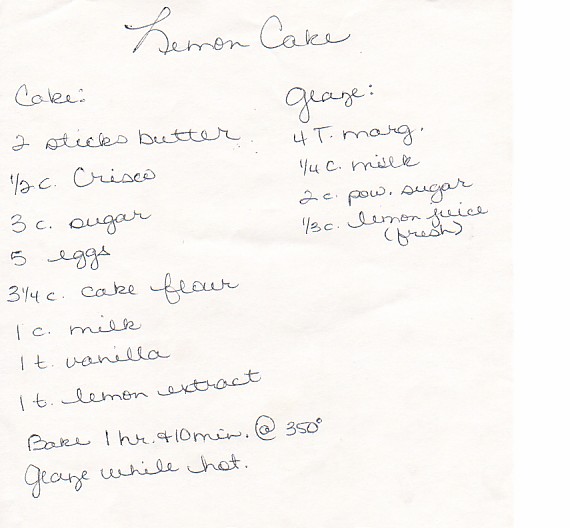 Lemon Cake
Cake:
2 sticks butter
1/2 c. Crisco
3 c. sugar
5 eggs
3 1/4 c. cake flour
1 c. milk
1 t. vanilla
1 t. lemon extract
Glaze:
4 T. marg.
1/4 c. milk
2 c. pow. sugar
1/3 c. lemon juice
(fresh)
Bake 1 hr. & 10 min. @ 350°
Glaze while hot.